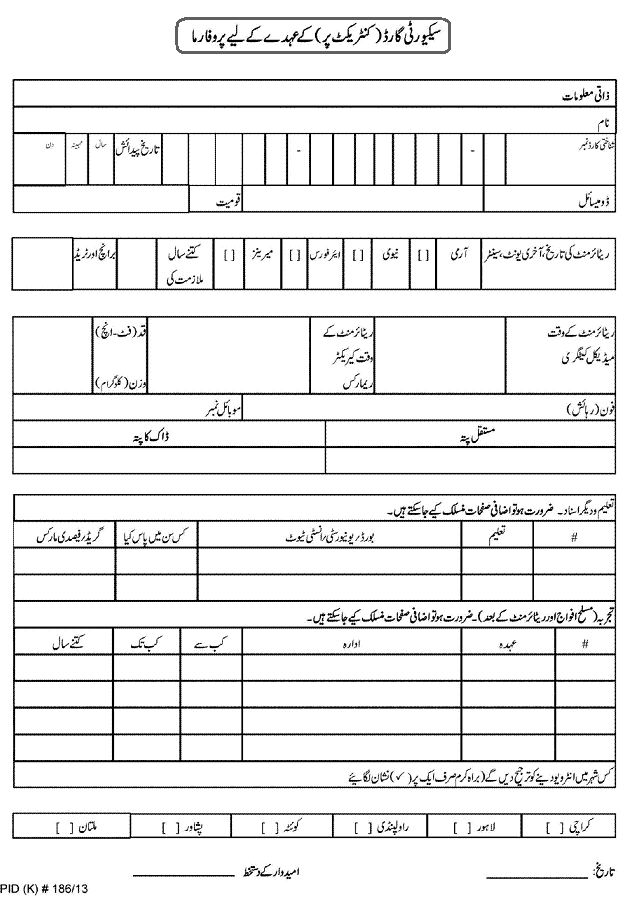 سیکیورٹی گارڈ (کنٹریکٹ پر) کے عہدے کے لیے پروفارما
ذاتی معلومات
نام
شناختی کارڈ نمبر - - تاریخ پیدائش سال مہینہ دن
ڈومیسائل قومیت
ریٹائرمنٹ کی تاریخ، آخری یونٹ، سینٹر آرمی [ ] نیوی [ ] ایئرفورس [ ] میرینز [ ] کتنے سال ملازمت کی برانچ اور ٹریڈ
ریٹائرمنٹ کے وقت میڈیکل کیٹگری ریٹائرمنٹ کے وقت کیریکٹر ریمارکس قد (فٹ-انچ) وزن (کلوگرام)
فون (رہائش) موبائل نمبر
مستقل پتہ ڈاک کا پتہ
تعلیم و دیگر اسناد۔ ضرورت ہو تو اضافی صفحات منسلک کیے جاسکتے ہیں۔
# تعلیم بورڈ/یونیورسٹی/انسٹی ٹیوٹ کس سن میں پاس کیا گریڈ/فیصدی مارکس
تجربہ (مسلح افواج اور ریٹائرمنٹ کے بعد)۔ ضرورت ہو تو اضافی صفحات منسلک کیے جاسکتے ہیں۔
# عہدہ ادارہ کب سے کب تک کتنے سال
کس شہر میں انٹرویو دینے کو ترجیح دیں گے (براہ کرم صرف ایک پر (✓) نشان لگائیے
کراچی [ ] لاہور [ ] راولپنڈی [ ] کوئٹہ [ ] پشاور [ ] ملتان [ ]
تاریخ: امیدوار کے دستخط
PID (K) # 186/13